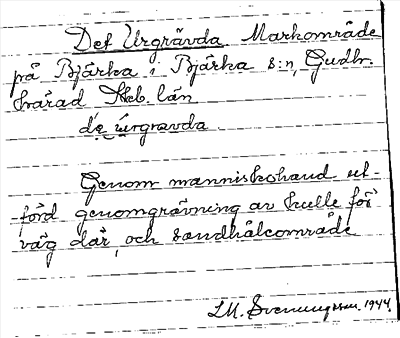 Det Urgrävda. Markområde
på Bjärka i Bjärka s:n, Gudh.
härad Skb. län
de urgravda
Genom människohand ut-
förd genomgrävning av kulle för
väg där, och sandhålsområde
1944